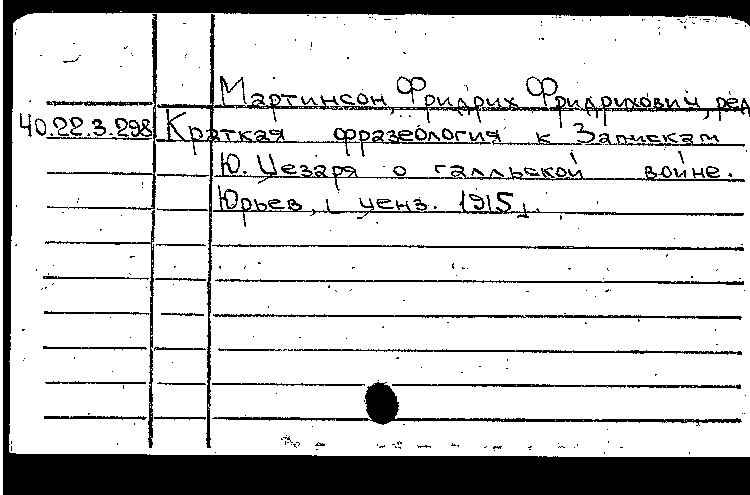 Мартинсон, Фридрих Фридрихович, ред
40.22.3.298 Краткая фразеология к Запискам
Ю. Цезаря о галльской войне.
Юрьев, [ценз. 1915].